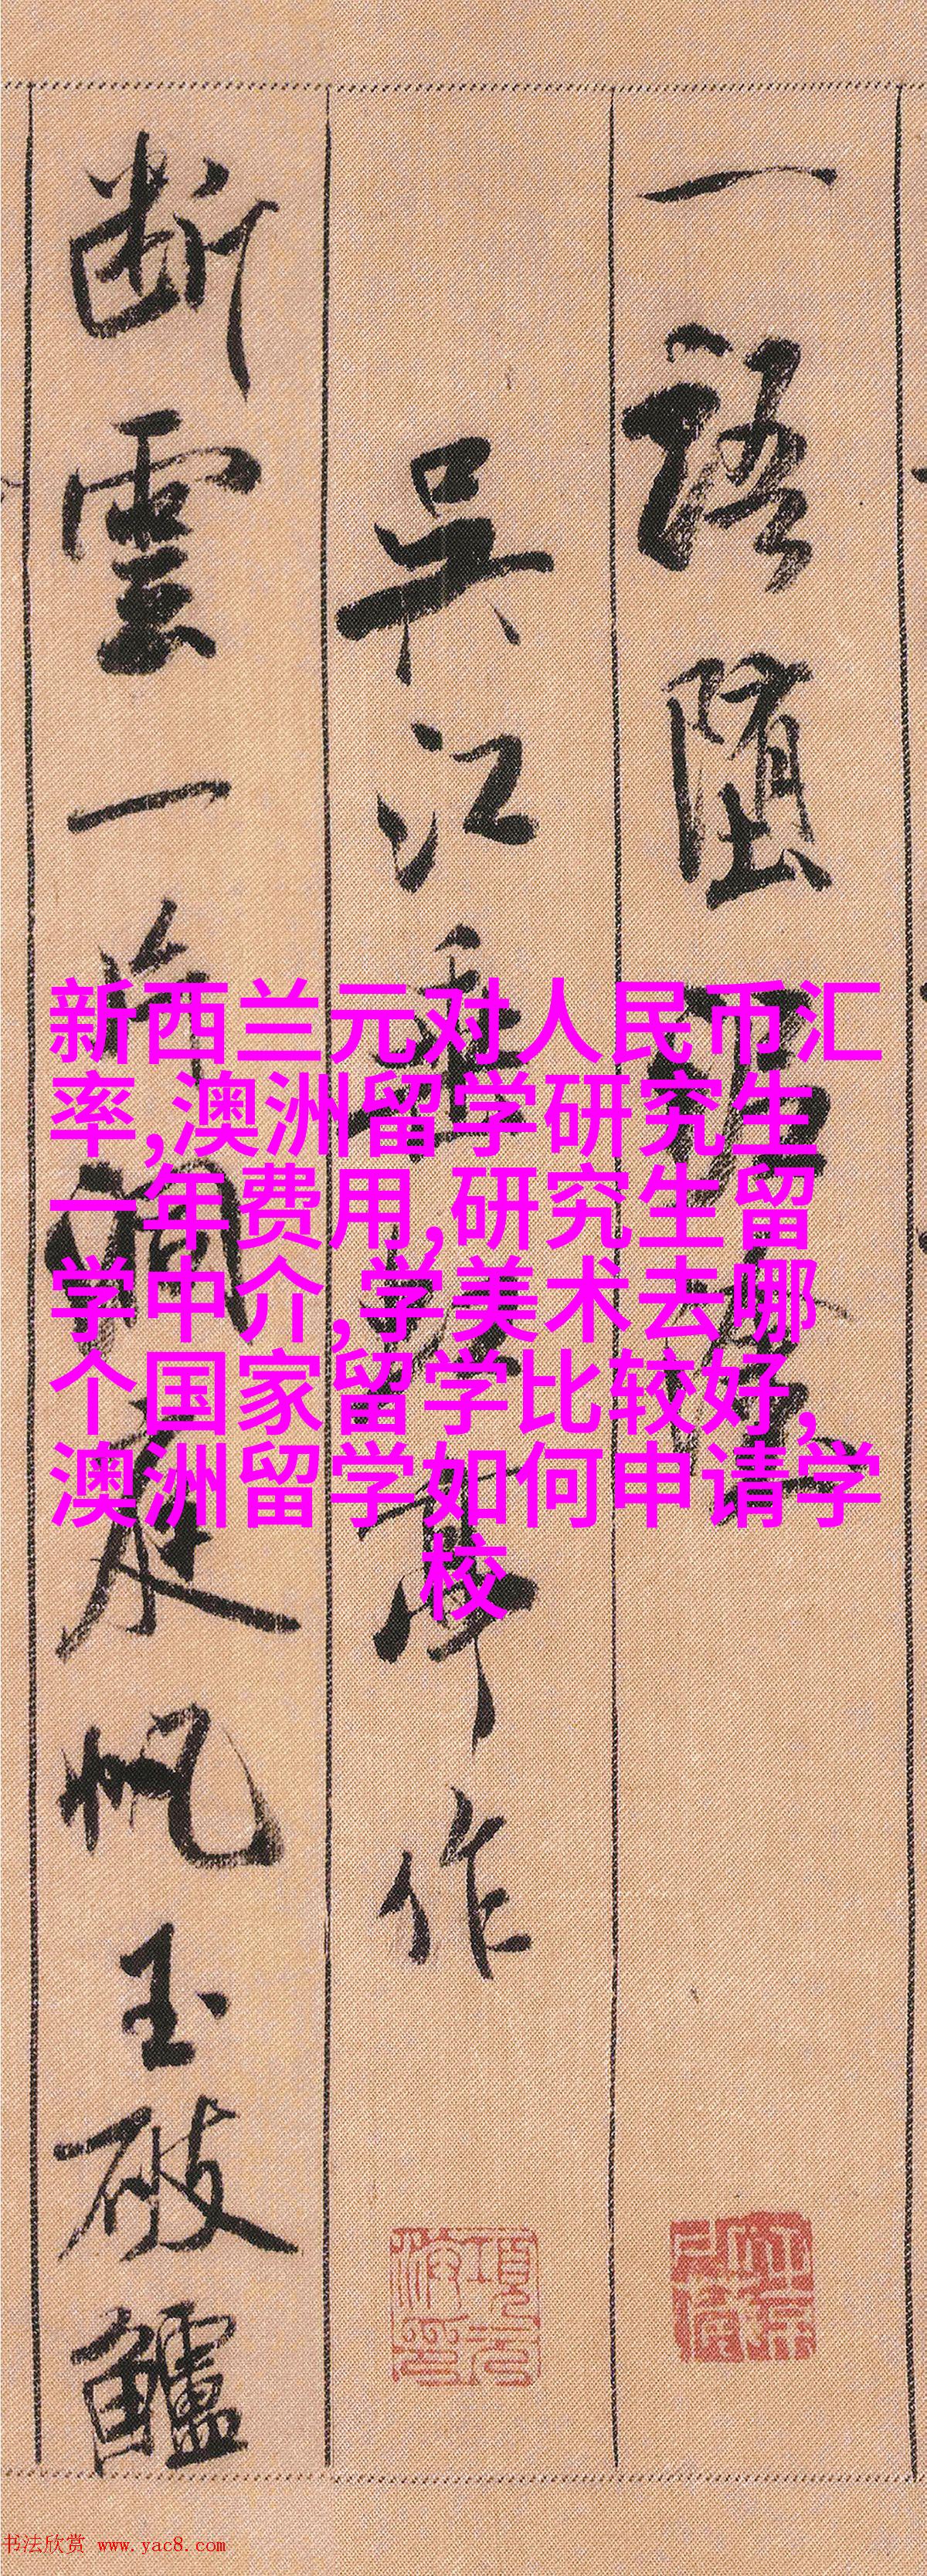 一語墮
吳江垂虹亭作
断雲一片洞庭帆玉破鱸
新西兰元对人民币汇
率,澳洲留学研究生
一年费用,研究生留
学中介,学美术去哪
个国家留学比较好,
澳洲留学如何申请学
校
书法欣赏 www.yac8.com